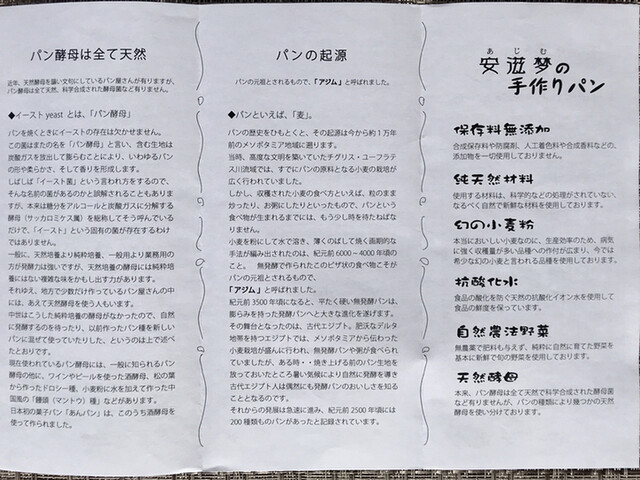 パン酵母は全て天然
近年、天然酵母を謳い文句にしているパン屋さんが有りますが、
パン酵母は全て天然、科学合成された酵母菌など有りません。
◆イースト yeast とは、「パン酵母」
パンを焼くときにイーストの存在は欠かせません。
この菌はまたの名を「パン酵母」と言い、含む生地は
炭酸ガスを放出して膨らむことにより、いわゆるパン
の形や柔らかさ、そして香りを形成します。
しばしば「イースト菌」という言われ方をするので、
そんな名前の菌があるのかと誤解されることもありま
すが、本来は糖分をアルコールと炭酸ガスに分解する
酵母（サッカロミケス属）を総称してそう呼んでいる
だけで、「イースト」という固有の菌が存在するわけ
ではありません。
一般に、天然培養より純粋培養、一般用より業務用の
方が発酵力は強いですが、天然培養の酵母には純粋培
養にはない複雑な味をかもし出す力があります。
それゆえ、地方で少数だけ作っているパン屋さんの中
には、あえて天然酵母を使う人もいます。
中世はこうした純粋培養の酵母がなかったので、自然
に発酵するのを待ったり、以前作ったパン種を新しい
パンに混ぜて使っていたりした、というのは上で述べ
たとおりです。
現在使われているパン酵母には、一般に知られるパン
酵母の他に、ワインやビールを使った酒酵母、松の葉
から作ったドロシー種、小麦粉に水を加えて作った中
国風の「饅頭（マントウ）種」などがあります。
日本初の菓子パン「あんパン」は、このうち酒酵母を
使って作られました。
パンの起源
パンの元祖とされるもので、「アジム」と呼ばれました。
◆パンといえば、「麦」。
パンの歴史をひもとくと、その起源は今から約１万年
前のメソポタミア地域に遡ります。
当時、高度な文明を築いていたチグリス・ユーフラテ
ス川流域では、すでにパンの原料となる小麦の栽培が
広く行われていました。
しかし、収穫された小麦の食べ方といえば、粒のまま
炒ったり、お粥にしたりといったもので、パンという
食べ物が生まれるまでには、もう少し時を待たねばな
りません。
小麦を粉にして水で溶き、薄くのばして焼く画期的な
手法が編み出されたのは、紀元前 6000～4000 年頃の
こと。 無発酵で作られたこのピザ状の食べ物こそが
パンの元祖とされるもので、
「アジム」と呼ばれました。
紀元前 3500 年頃になると、平たく硬い無発酵パンは、
膨らみを持った発酵パンへと大きな進化を遂げます。
その舞台となったのは、古代エジプト。肥沃なデルタ
地帯を持つエジプトでは、メソポタミアから伝わった
小麦栽培が盛んに行われ、無発酵パンや粥が食べられ
ていましたが、ある時・・焼き上げる前のパン生地を
放っておいたところ暑い気候により自然に発酵を導き
古代エジプト人は偶然にも発酵パンのおいしさを知る
こととなるのです。
それからの発展は急速に進み、紀元前 2500 年頃には
200 種類ものパンがあったと記録されています。
あじむ
安滋夢の
手作りパン
保存料無添加
合成保存料や防腐剤、人工着色料や合成香料などの、
添加物を一切使用しておりません。
純天然材料
使用する材料は、科学的などの処理がされていない、
なるべく自然で新鮮な材料を使用しております。
幻の小麦粉
本当においしい小麦なのに、生産効率のため、病気
に強く収穫量が多い品種への作付が広まり、今では
希少な幻の小麦と言われる品種を使用しております。
抗酸化水
食品の酸化を防ぐ天然の抗酸イオン水を使用して
食品の鮮度を保っています。
自然農法野菜
無農薬で肥料も与えず、純粋に自然に育てた野菜を
基本に新鮮で旬の野菜を使用しております。
天然酵母
本来、パン酵母は全て天然で科学合成された酵母菌
など有りませんが、パンの種類により幾つかの天然
酵母を使い分けております。